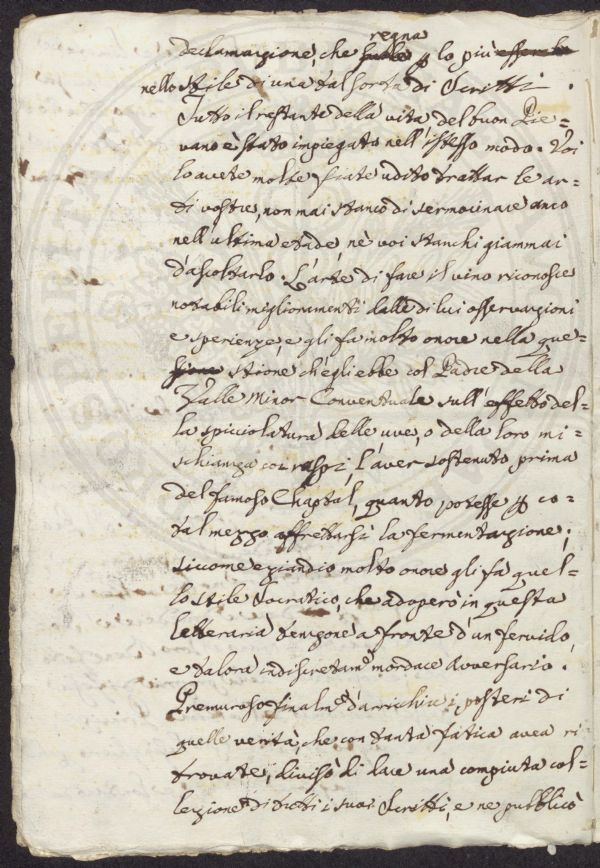 regna
declamazione, che suole ꝑ lo più
nello stile di una tal sorta di Scritti.
Tutto il restante della vita del buon Pie-
vano è stato impiegato nell'istesso modo. Voi
lo avete molte fiate udito trattar le ar-
ti vostre, non mai stanco di sermocinare anco
nell'ultima etade, nè voi stanchi giammai
d'ascoltarlo. L'arte di fare il vino riconosce
notabili miglioramenti dalle di lui osservazioni
e sperienze, e gli fa molto onore nella que-
stione, ch'egli ebbe col Padre della
Valle Minor Conventuale sull'effetto del-
la spicciolatura delle uve, o della loro mi-
schianza coi raspi, l'aver sostenuto prima
del famoso Chaptal, quanto potesse ꝑ co-
tal mezzo affrettarsi la fermentazione;
siccome eziandio molto onore gli fa quel-
lo stile Socratico, che adoperò in questa
letteraria tenzone a fronte d'un fervido,
e talora indiscretam.e mordace Avversario.
Premuroso finalm.e d'arrichire i posteri di
quelle verità, che con tanta fatica avea ri-
trovate, divisò di dare una compiuta col-
lezione di tutti i suoi Scritti, e ne pubblicò